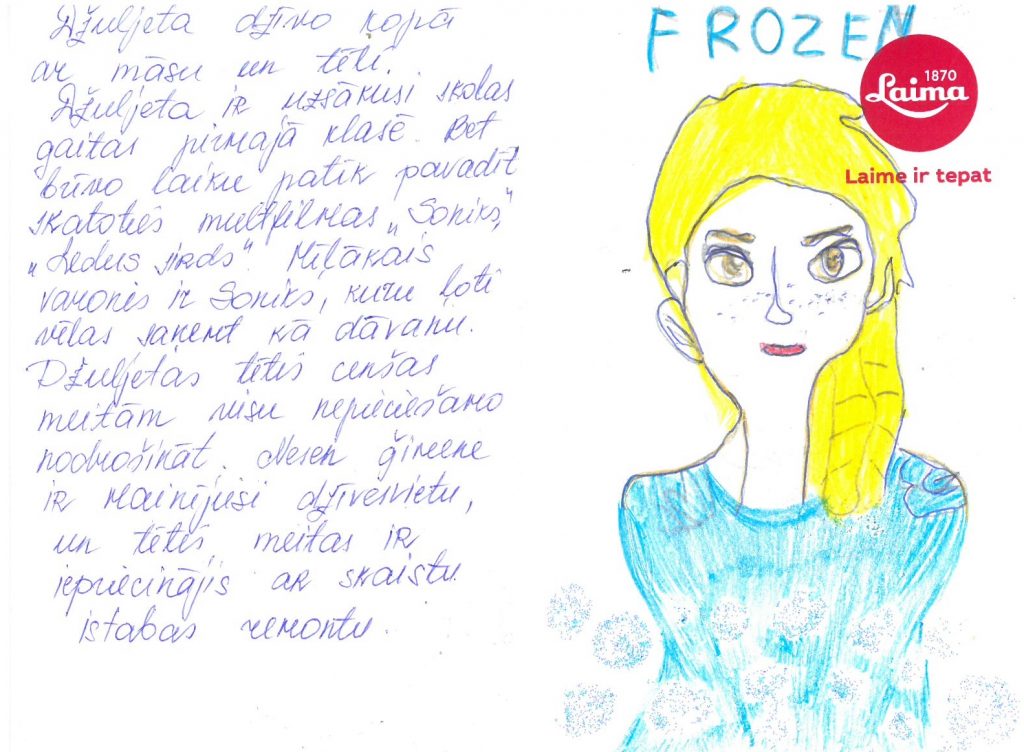 Džuljeta dzīvo kopā
ar māsu un tēti.
Džuljeta ir uzsākusi skolas
gaitas pirmajā klasē. Bet
brīvo laiku patīk pavadīt
skatoties multfilmas „Soniks”,
„Ledus sirds”. Mīļākais
varonis ir Soniks, kuru ļoti
vēlas saņemt kā dāvanu.
Džuljetas tētis cenšas
meitām visu nepieciešamo
nodrošināt. Nesen ģimene
ir mainījusi dzīvesvietu,
un tētis meitas ir
iepriecinājis ar skaistu
istabas remontu.
FROZEN
1870
Laima
Laime ir tepat